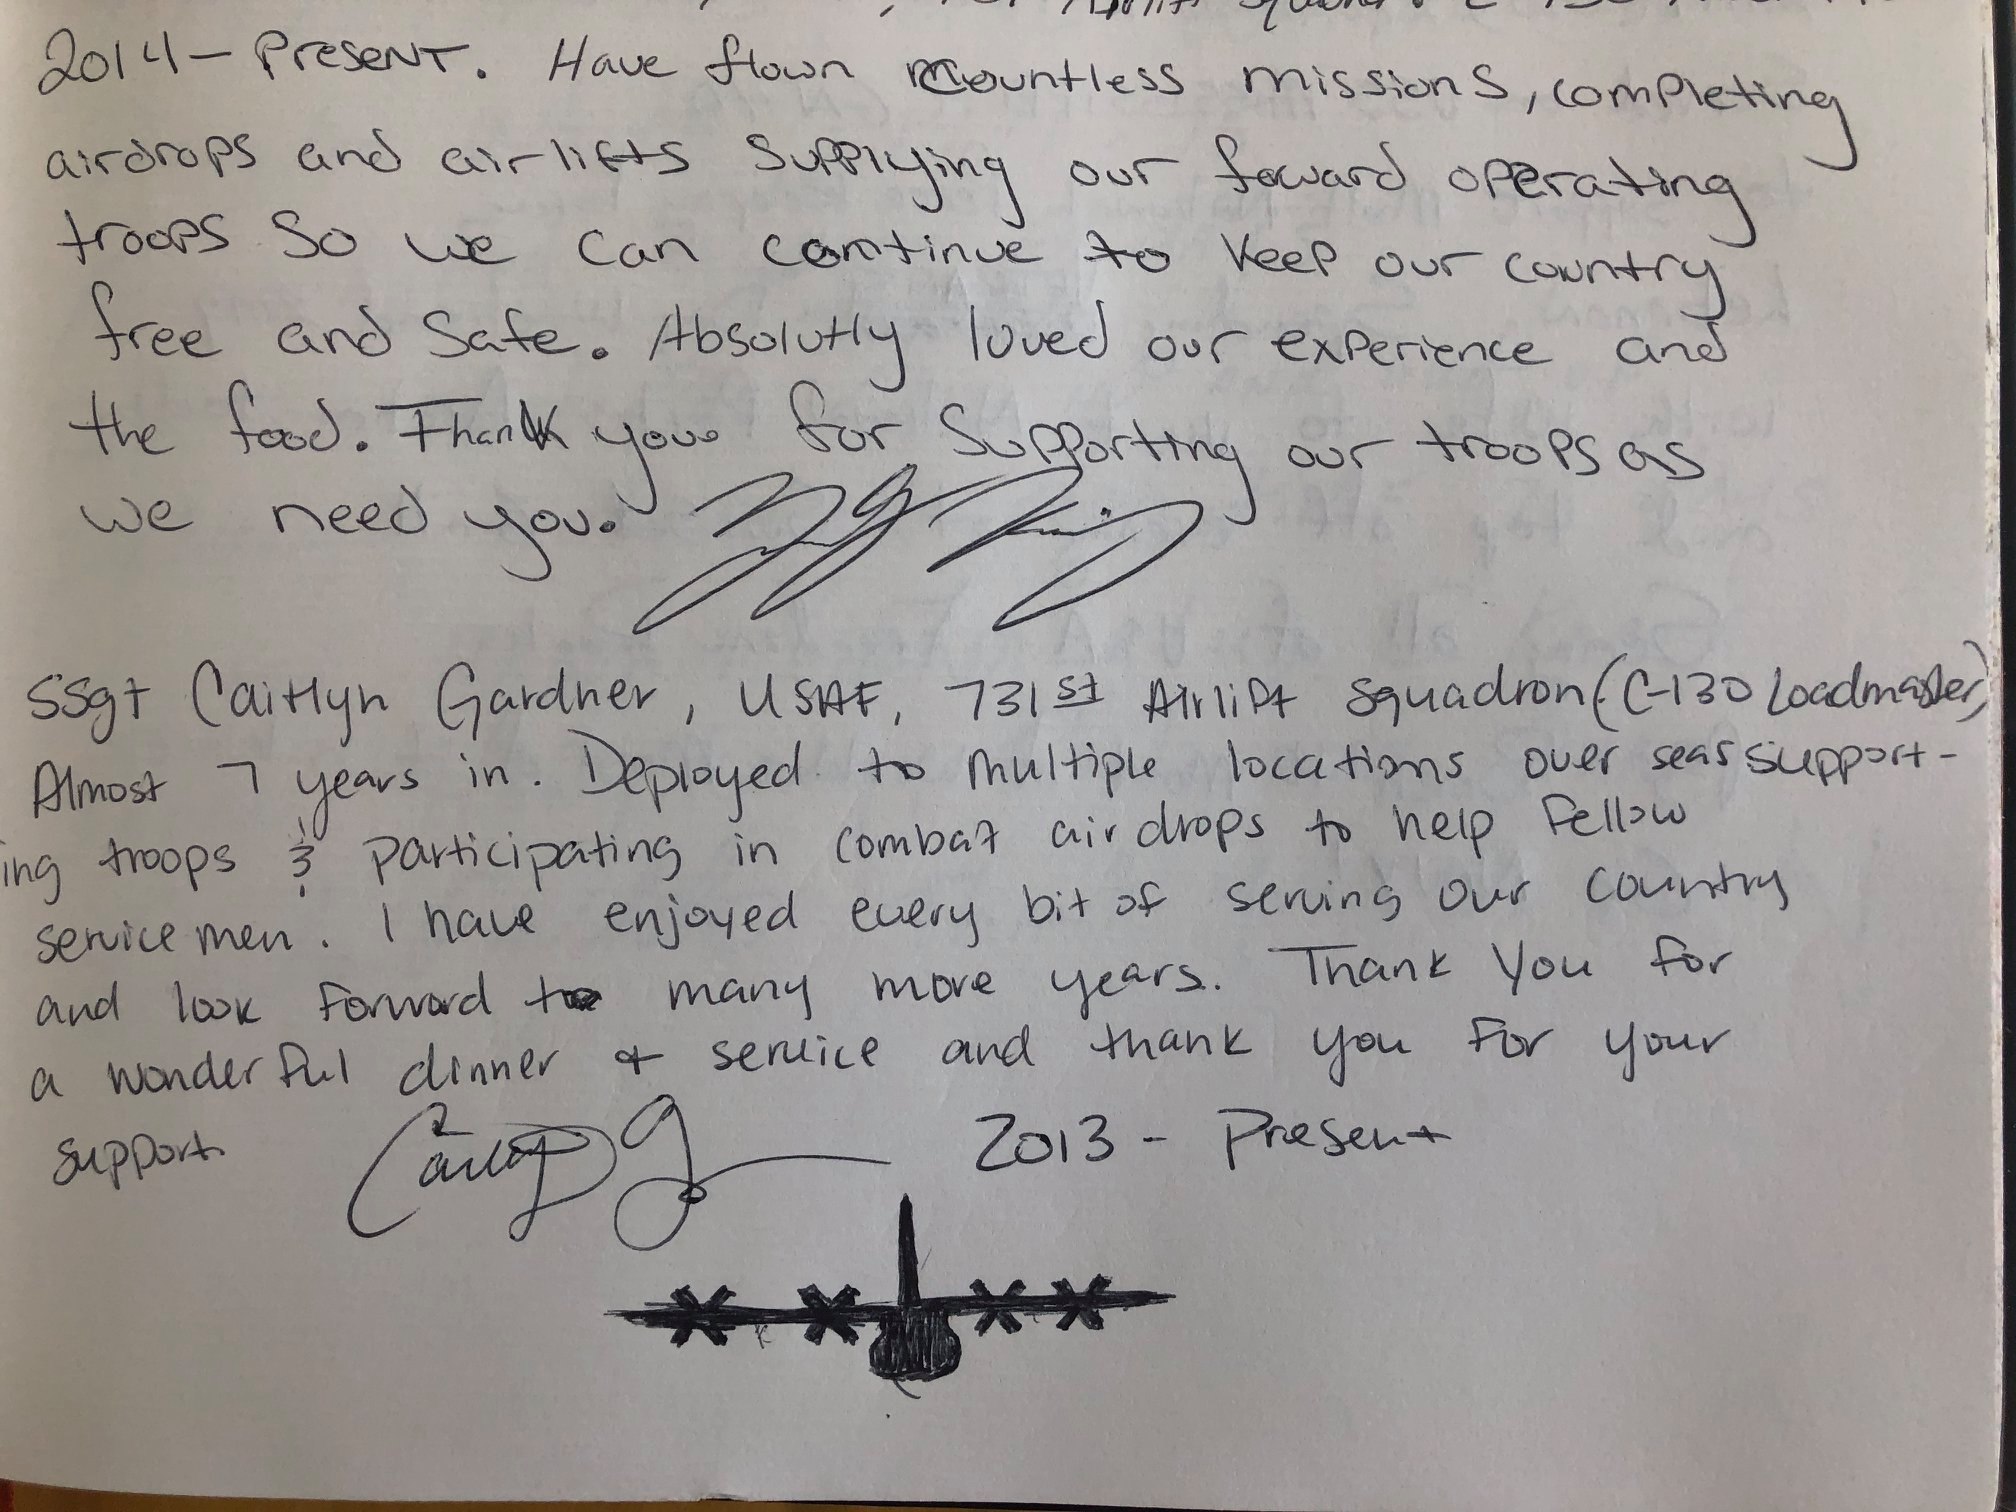 Airlift Squadron C-130
2014 - Present. Have flown countless missions, completing
airdrops and airlifts supplying our foward operating
troops so we can continue to keep our country
free and safe. Absolutly loved our experience and
the food. Thank you for supporting our troops as
we need you.
SSgt Caitlyn Gardner, USAF, 731st Airlift Squadron (C-130 Loadmaster)
Almost 7 years in. Deployed to multiple locations over seas support-
ing troops & participating in combat airdrops to help fellow
service men. I have enjoyed every bit of serving our country
and look forward to many more years. Thank you for
a wonderful dinner & service and thank you for your
support. 2013 - Present